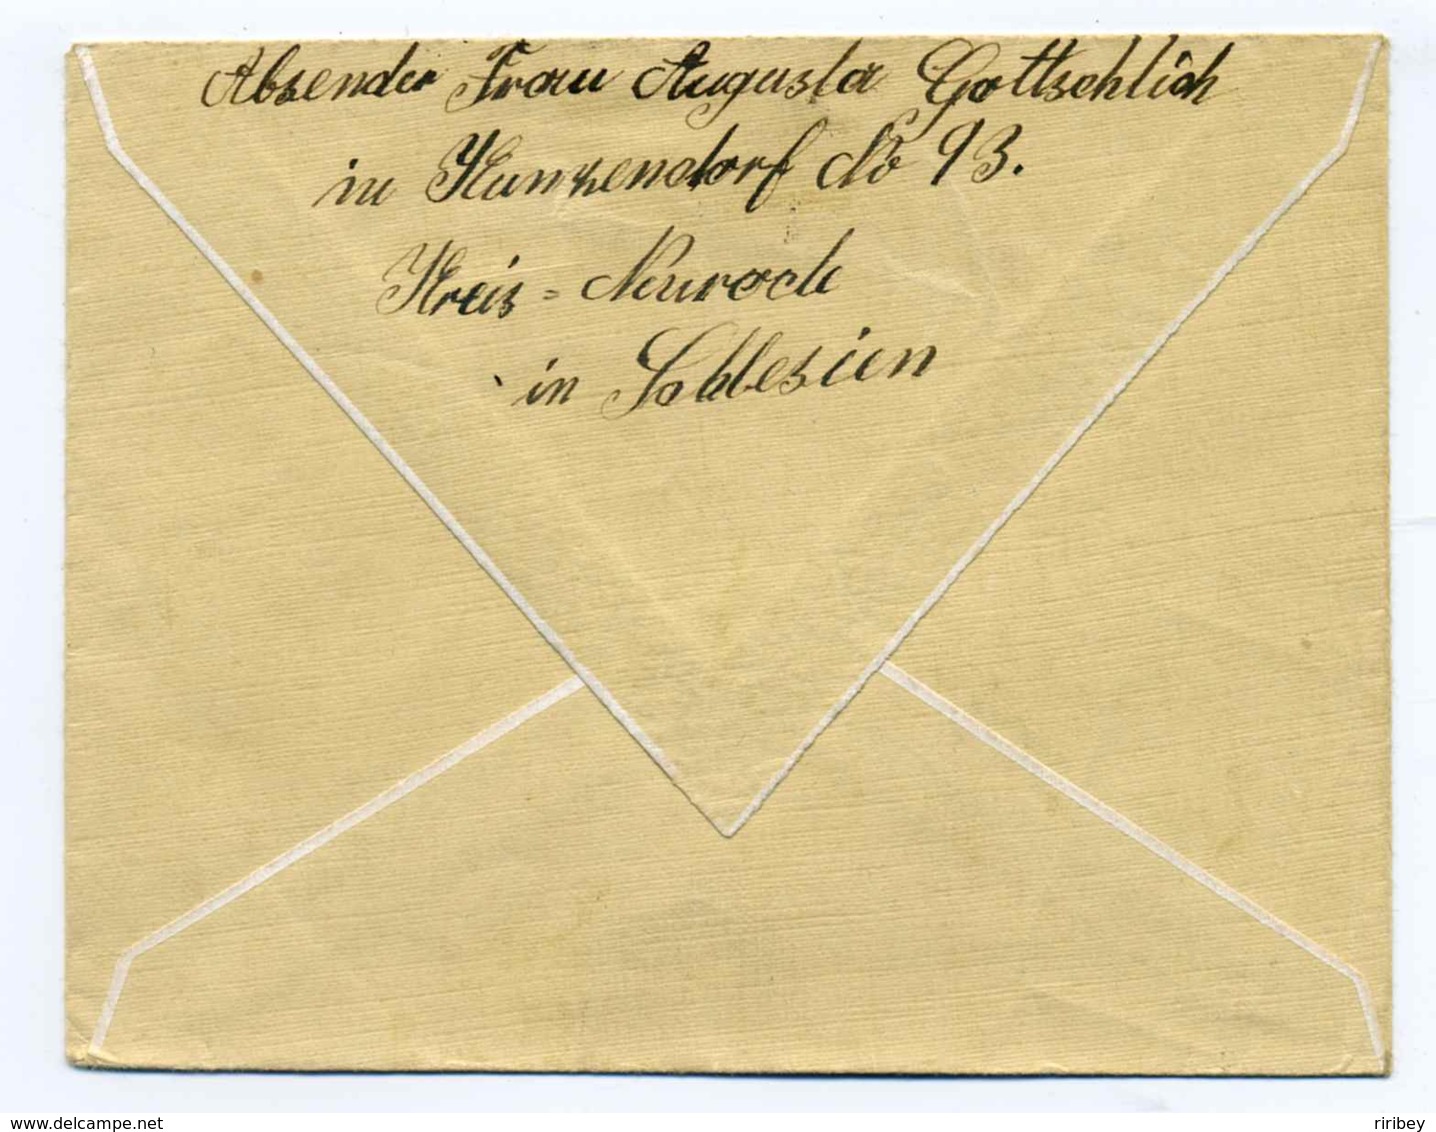 Absender Frau Augusta Gottschlich
in Kunzendorf No 93.
Kreis = Neurode
in Schlesien
www.delcampe.net
riribey